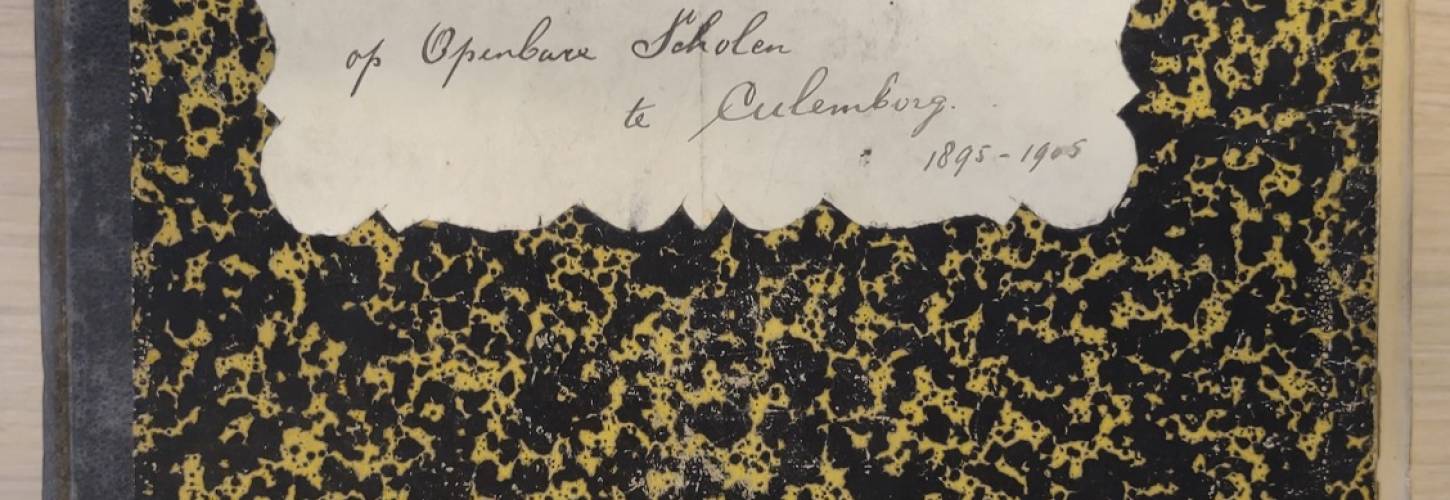 op Openbare Scholen
te Culemborg.
1895-1905